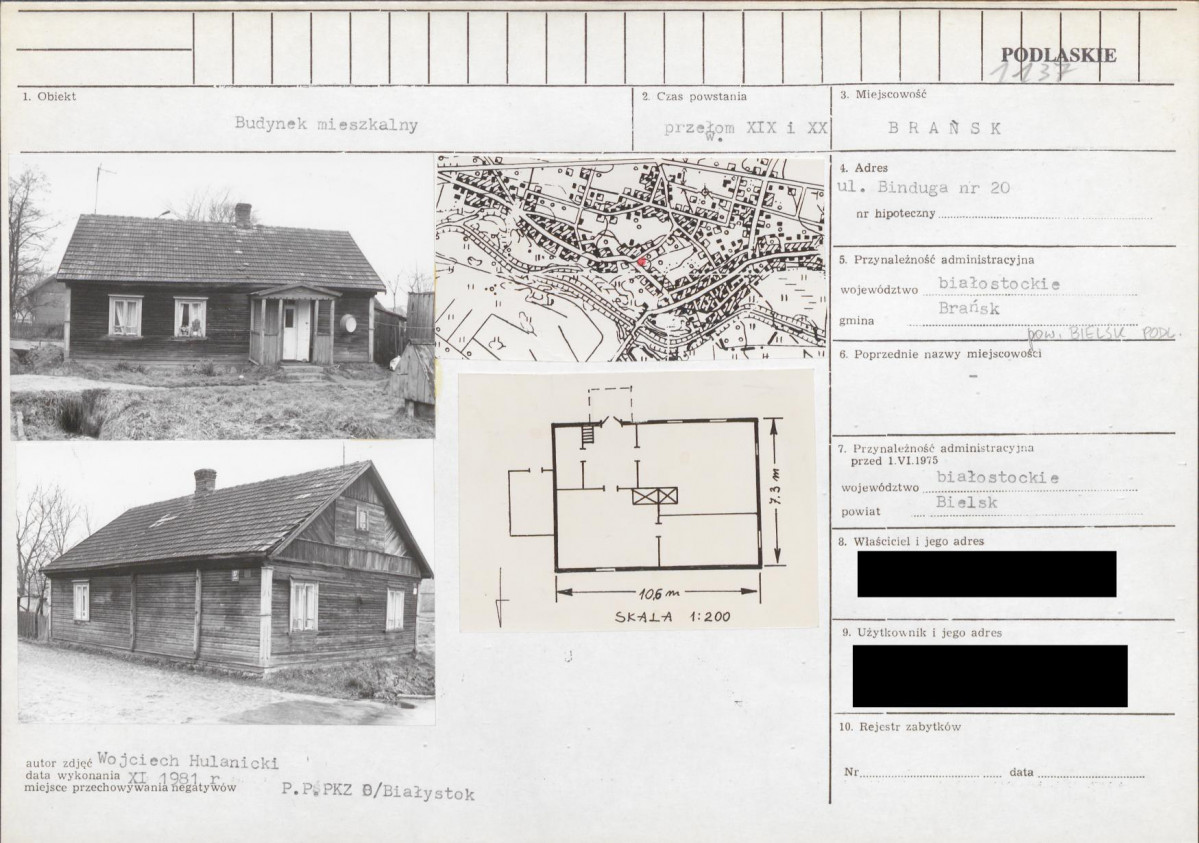 PODLASKIE
1137
1. Obiekt
Budynek mieszkalny
2. Czas powstania
przełom XIX i XX
w.
3. Miejscowość
BRAŃSK
4. Adres
ul. Binduga nr 20
nr hipoteczny
5. Przynależność administracyjna
województwo białostockie
gmina Brańsk
pow. BIELSK PODL.
6. Poprzednie nazwy miejscowości
-
7. Przynależność administracyjna
przed 1.VI.1975
województwo białostockie
powiat Bielsk
8. Właściciel i jego adres
9. Użytkownik i jego adres
10. Rejestr zabytków
Nr data
7.3 m
10,6 m
SKALA 1:200
autor zdjęć Wojciech Hulanicki
data wykonania XI 1981 r.
miejsce przechowywania negatywów P.P.PKZ B/Białystok